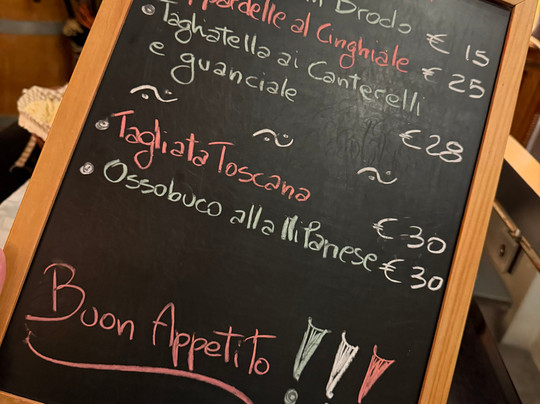 in Brodo € 15
Pappardelle al Cinghiale € 25
Tagliatella ai Canterelli
e guanciale € 28
Tagliata Toscana € 30
Ossobuco alla Milanese € 30
Buon Appetito !!!